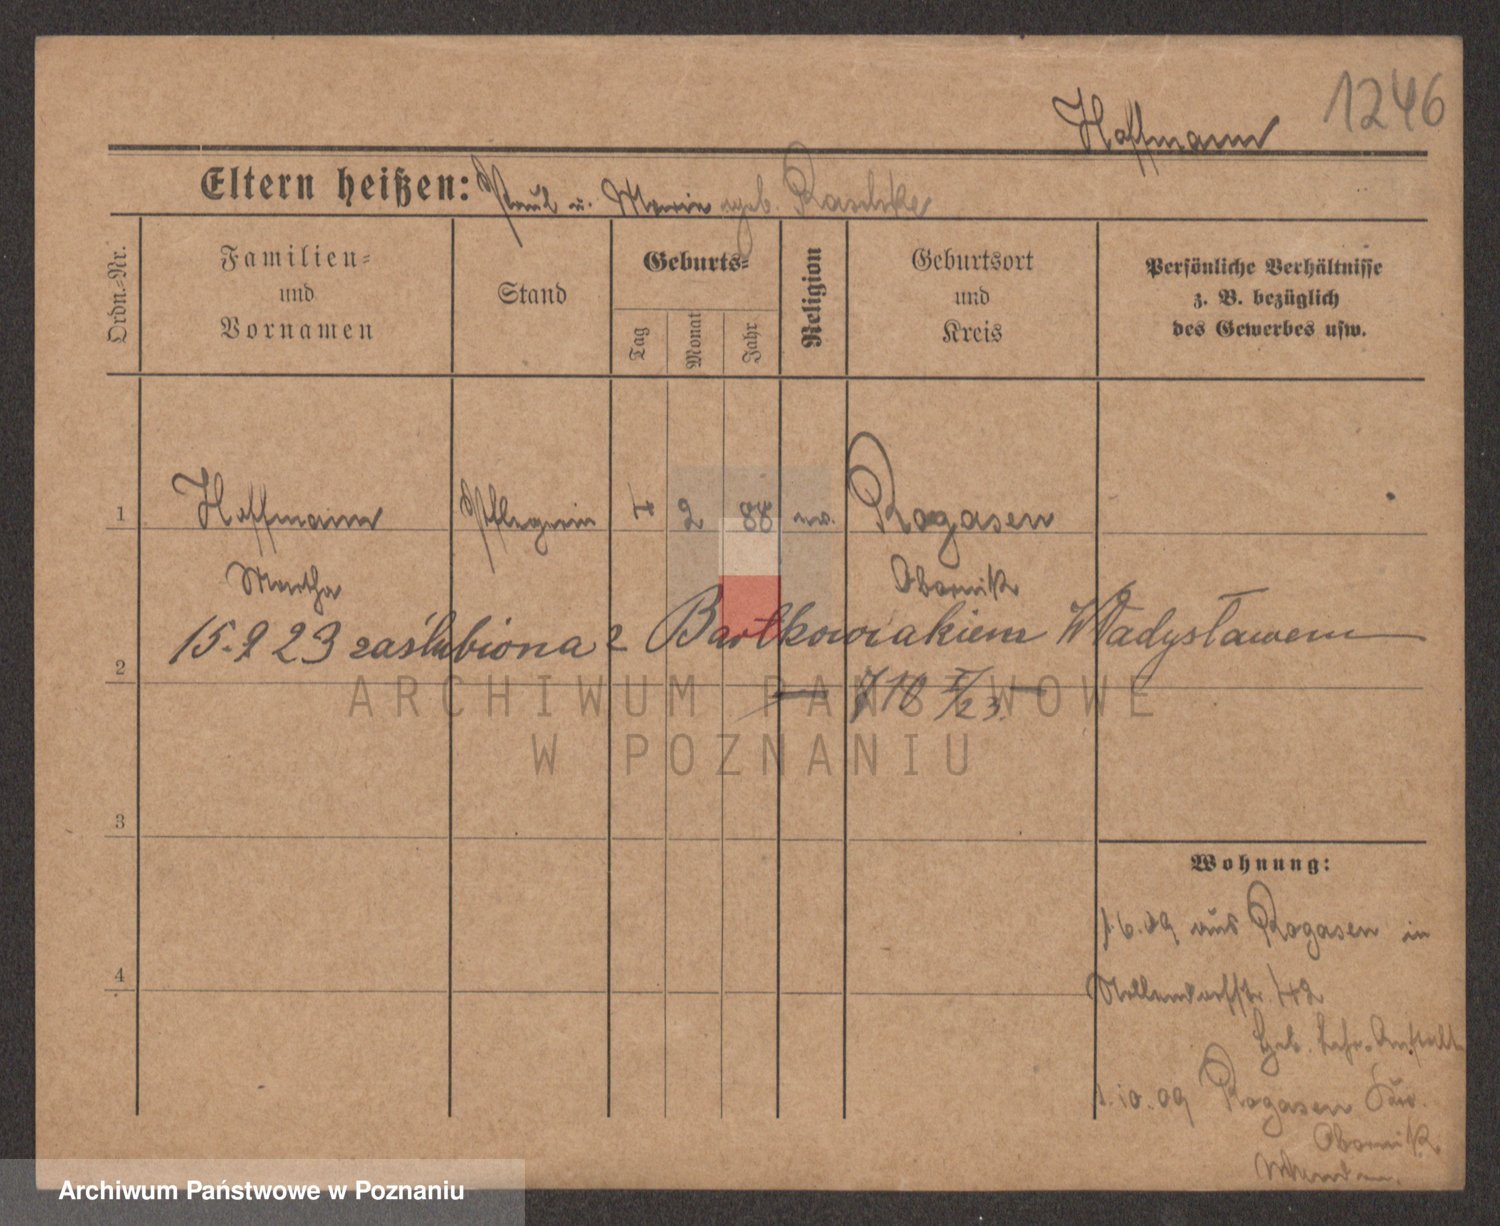 1246
Hoffmann
Eltern heißen: Paul u. Marie geb. Raschke
Ordn.-Nr.
Familien- und Vornamen
Stand
Geburts-
Tag
Monat
Jahr
Religion
Geburtsort und Kreis
Persönliche Verhältnisse
z. B. bezüglich
des Gewerbes usw.
1 Hoffmann Pflegerin 4 2 88 ev. Rogasen
Martha Obornik
15.9 23 zaślubiona z Bartkowiakiem Władysławem
2
ARCHIWUM PAŃSTWOWE
W POZNANIU
3
Wohnung:
1.6.09 aus Rogasen in
4
Nollendorfstr. 42
Heb. Lehr-Anstalt
1.10.09 Rogasen
Obornik
Archiwum Państwowe w Poznaniu